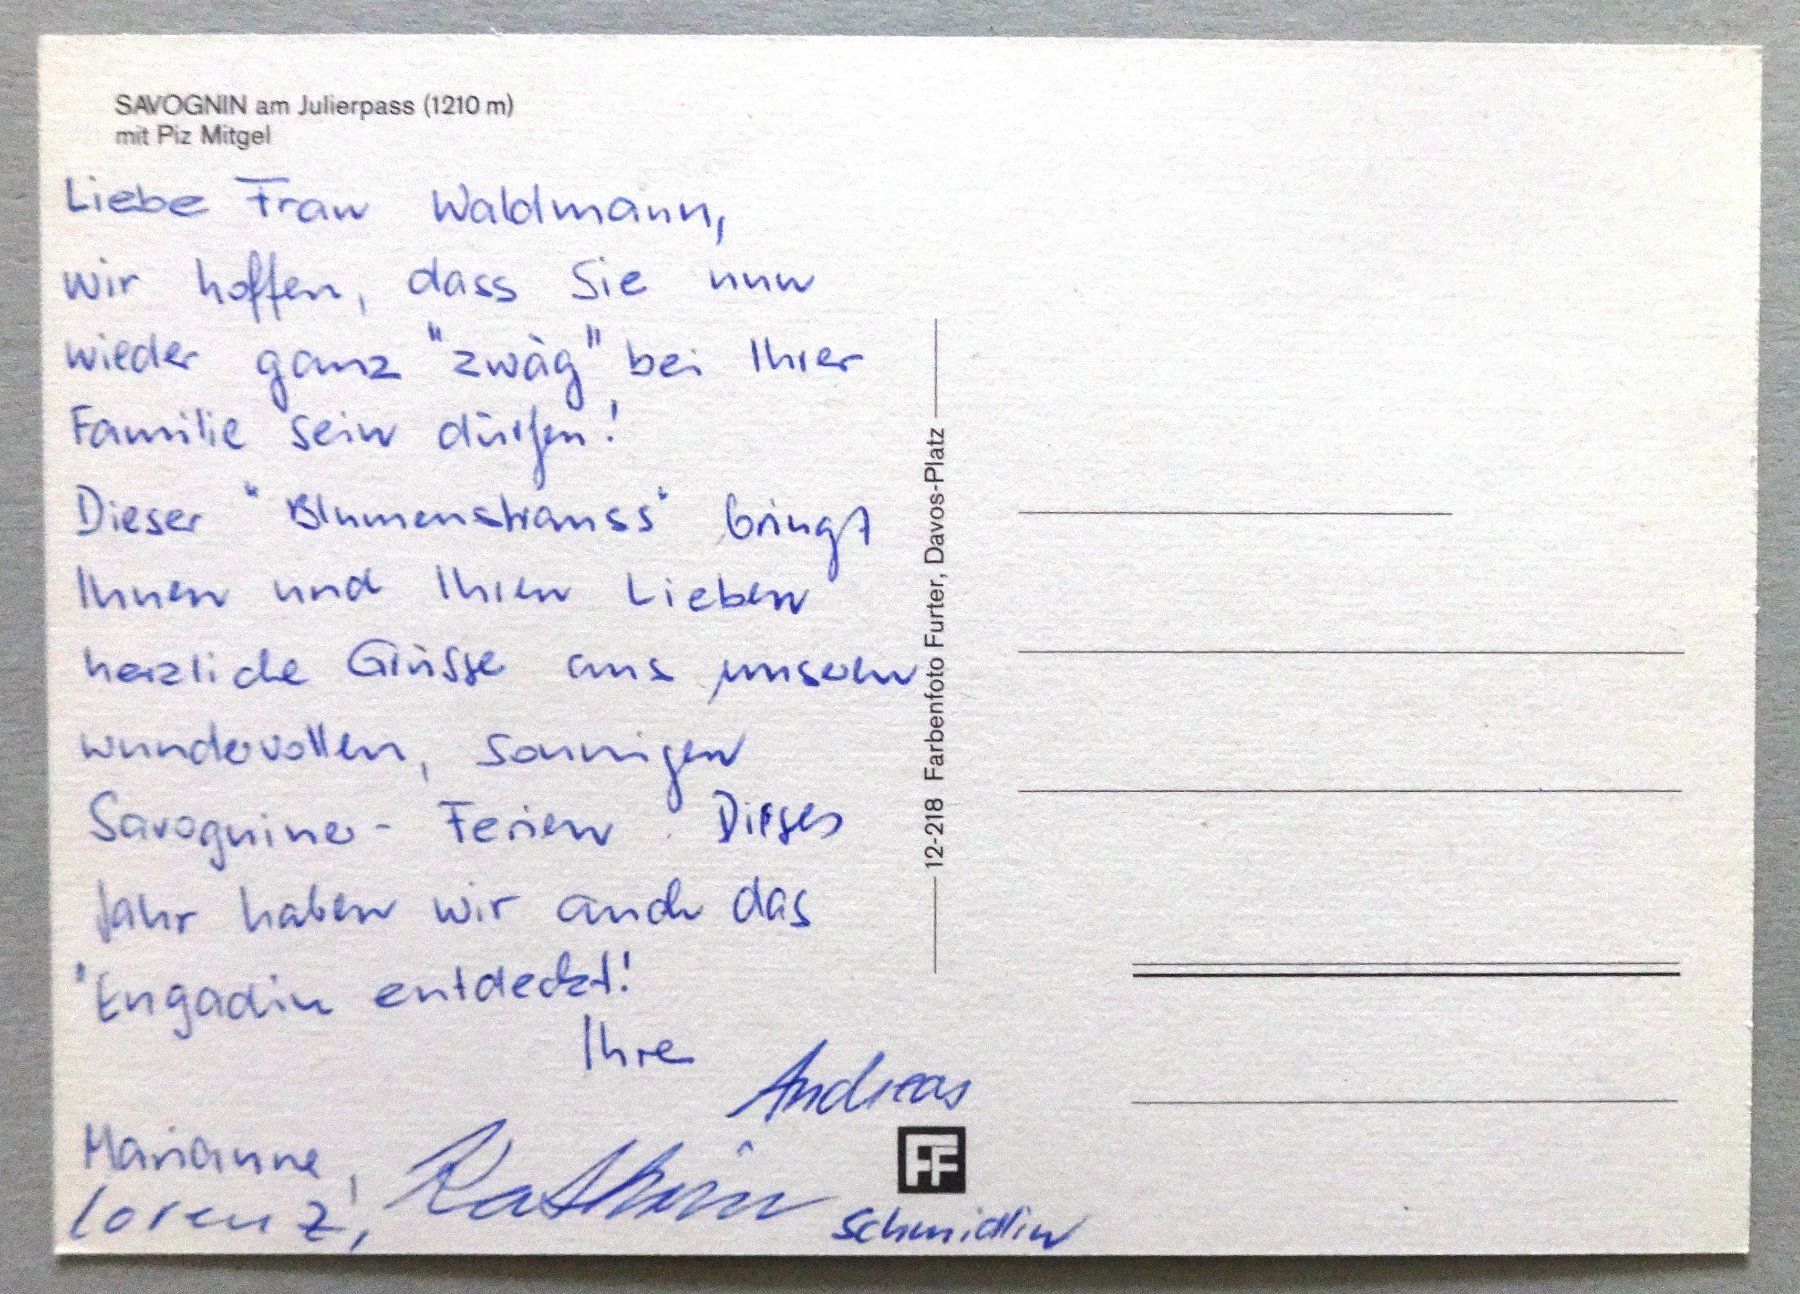 SAVOGNIN am Julierpass (1210 m)
mit Piz Mitgel
Liebe Frau Waldmann,
wir hoffen, dass Sie nun
wieder ganz "zwäg" bei Ihrer
Familie sein dürfen!
Dieser "Blumenstrauss" bringt
Ihnen und Ihren Lieben
herzliche Grüsse aus unsern
wundervollen, sonnigen
Savogniner- Ferien. Dieses
Jahr haben wir auch das
Engadin entdeckt!
Ihre
Andreas
Marianne,
Lorenz,
Schmidlin
12-218 Farbenfoto Furter, Davos-Platz
FF